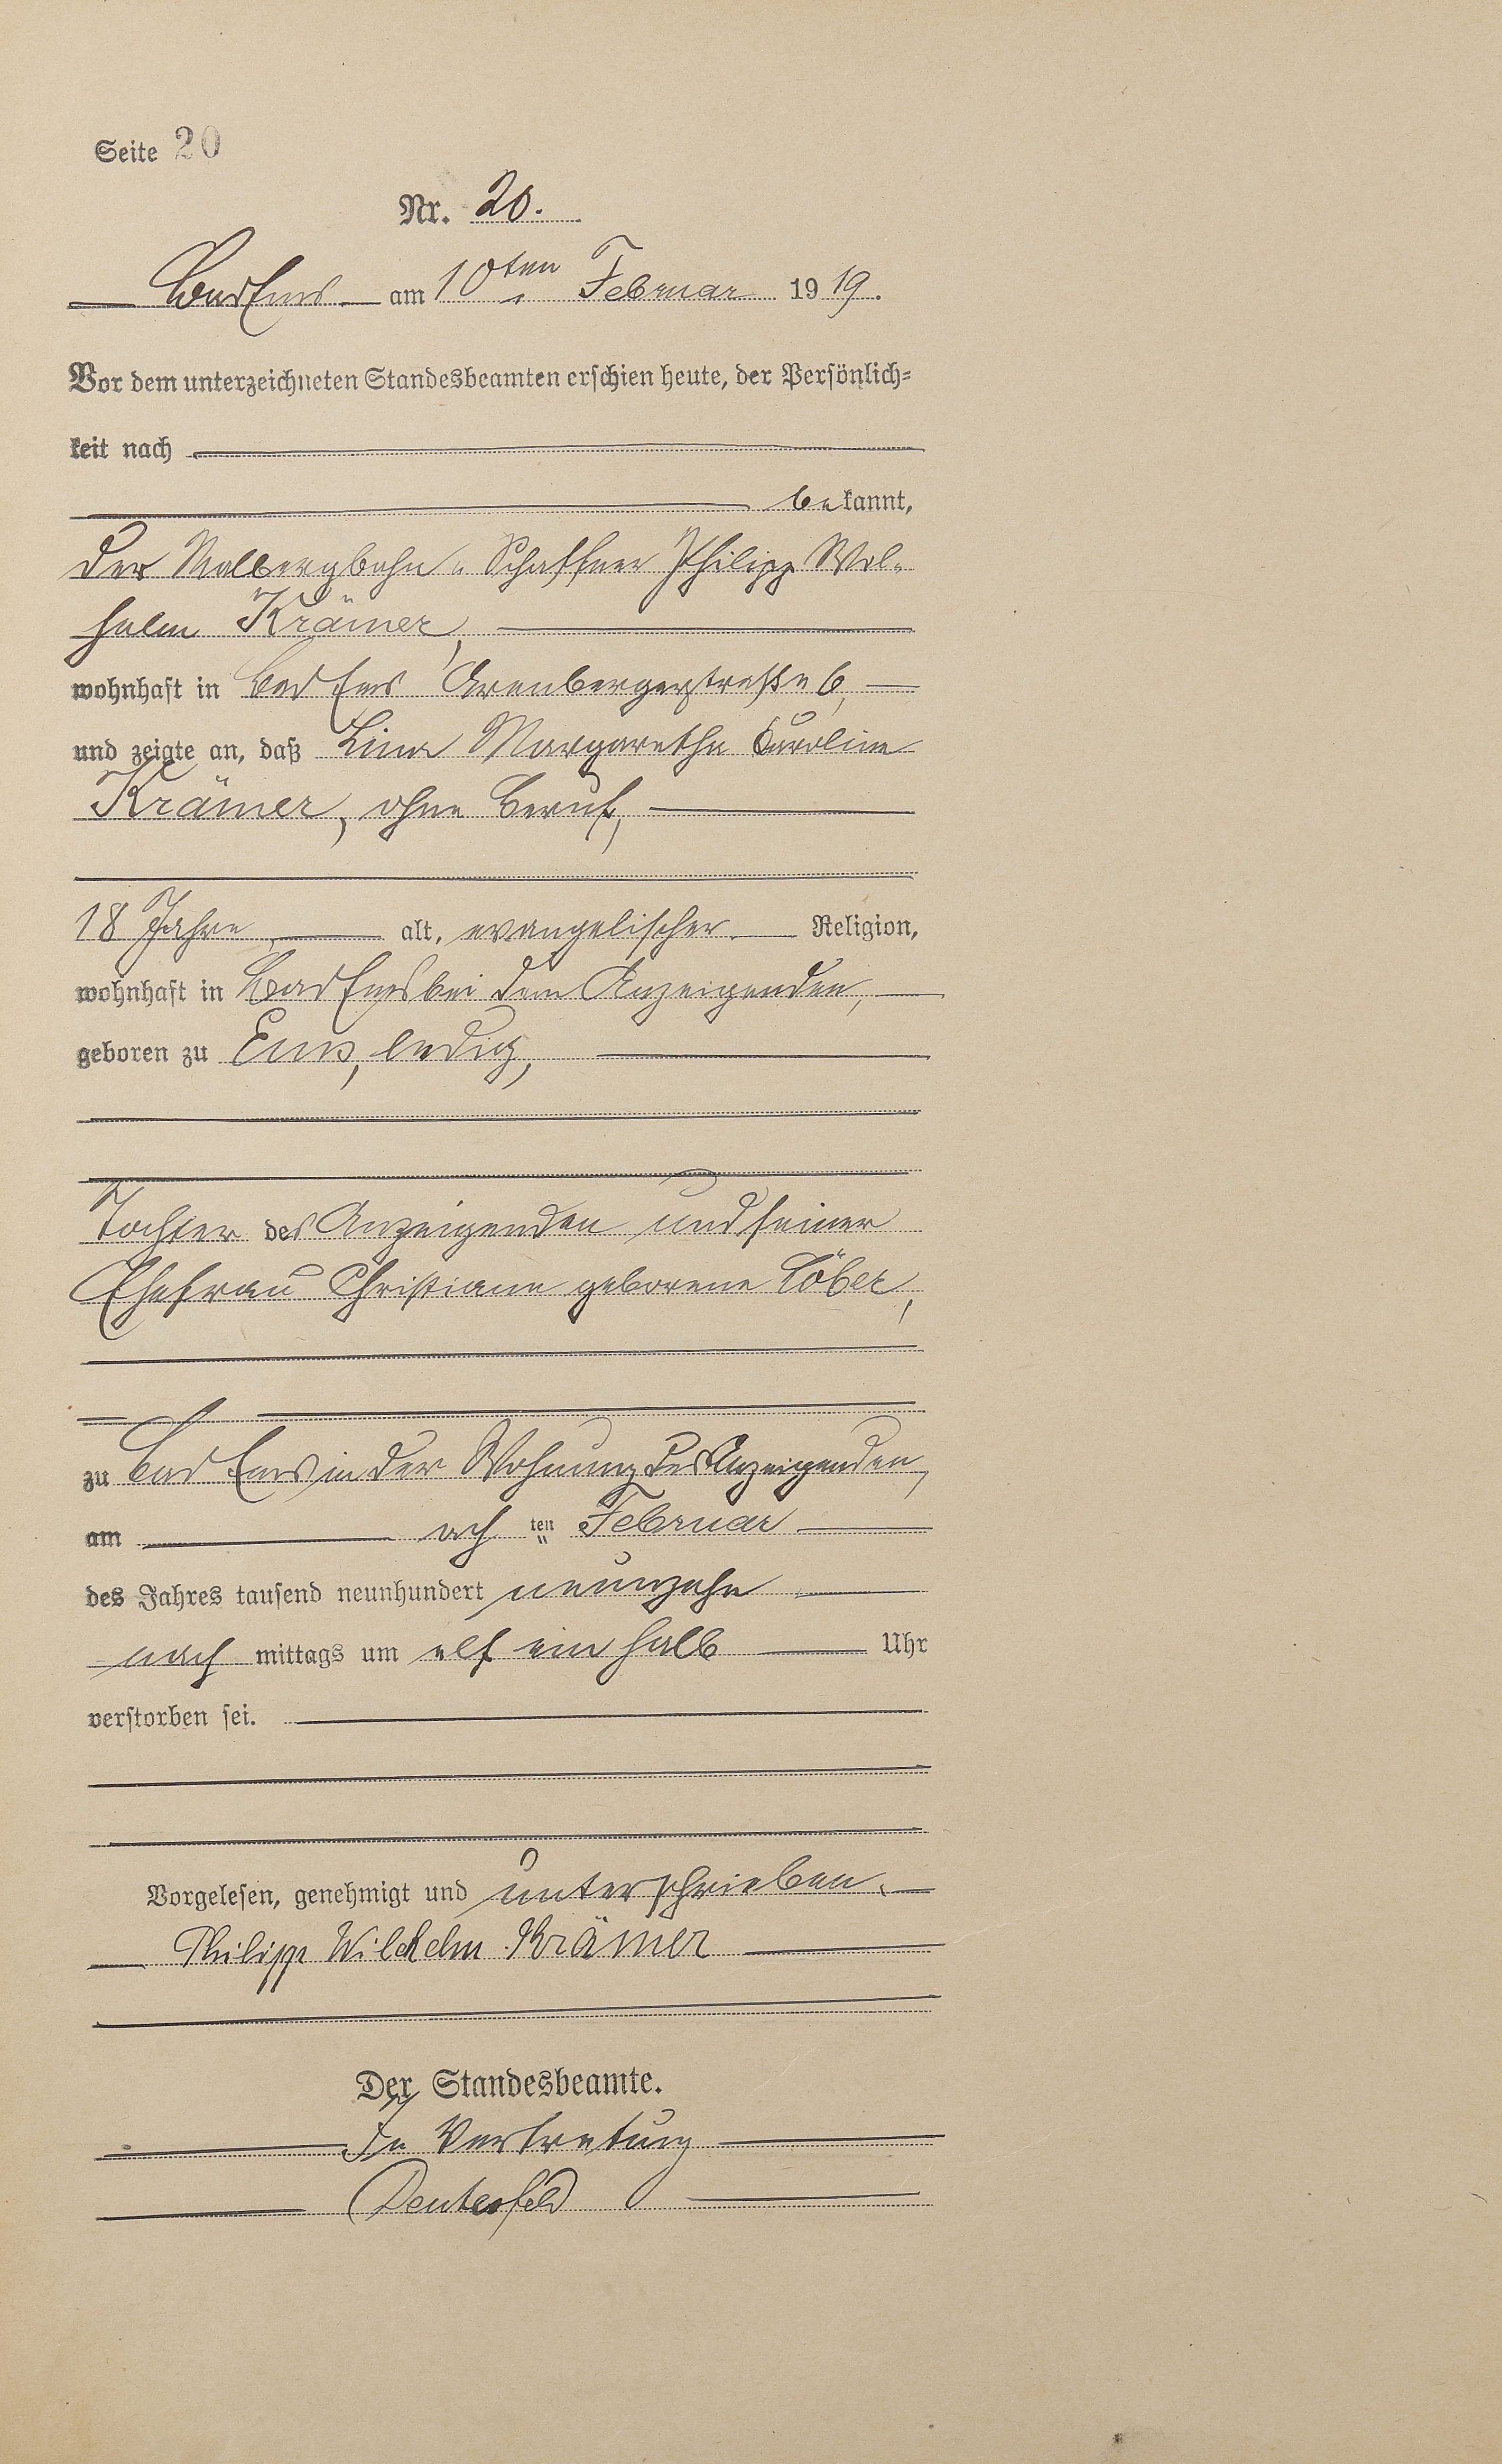 Seite 20
Nr. 20.
Bad Ems am 10ten Februar 1919.
Vor dem unterzeichneten Standesbeamten erschien heute, der Persönlich=
keit nach
bekannt,
der Malbergbahn-Schaffner Philipp Wil-
helm Krämer,
wohnhaft in Bad Ems Arenbergerstraße 6,
und zeigte an, daß Lina Margaretha Caroline
Krämer, ohne Beruf,
18 Jahre alt, evangelischer Religion,
wohnhaft in Bad Ems bei dem Anzeigenden,
geboren zu Ems, ledig,
Tochter des Anzeigenden und seiner
Ehefrau Christiane geborene Löber,
zu Bad Ems in der Wohnung des Anzeigenden,
am achten Februar
des Jahres tausend neunhundert neunzehn
nachmittags um elf ein halb Uhr
verstorben sei.
Vorgelesen, genehmigt und unterschrieben.
Philipp Wilhelm Krämer
Der Standesbeamte.
In Vertretung